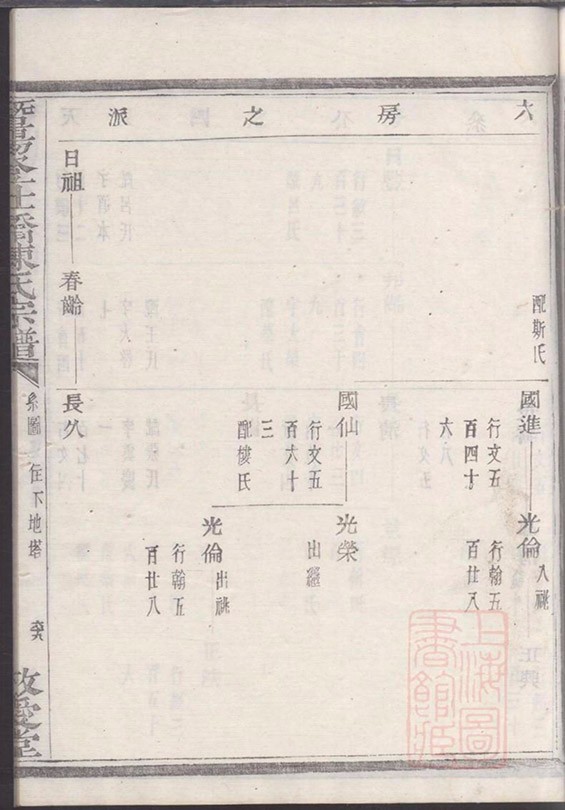 六房之派
配斯氏
國進
行文五
百四十
六
光倫
入祧
行翰五
百廿八
國仙
行文五
百六十
三
配樓氏
光榮
出繼
光倫
出祧
行翰五
百廿八
日祖
春齡
長久
暨陽
橋陳氏宗譜
系圖
住下地塔
敬愛堂
上海圖書館藏